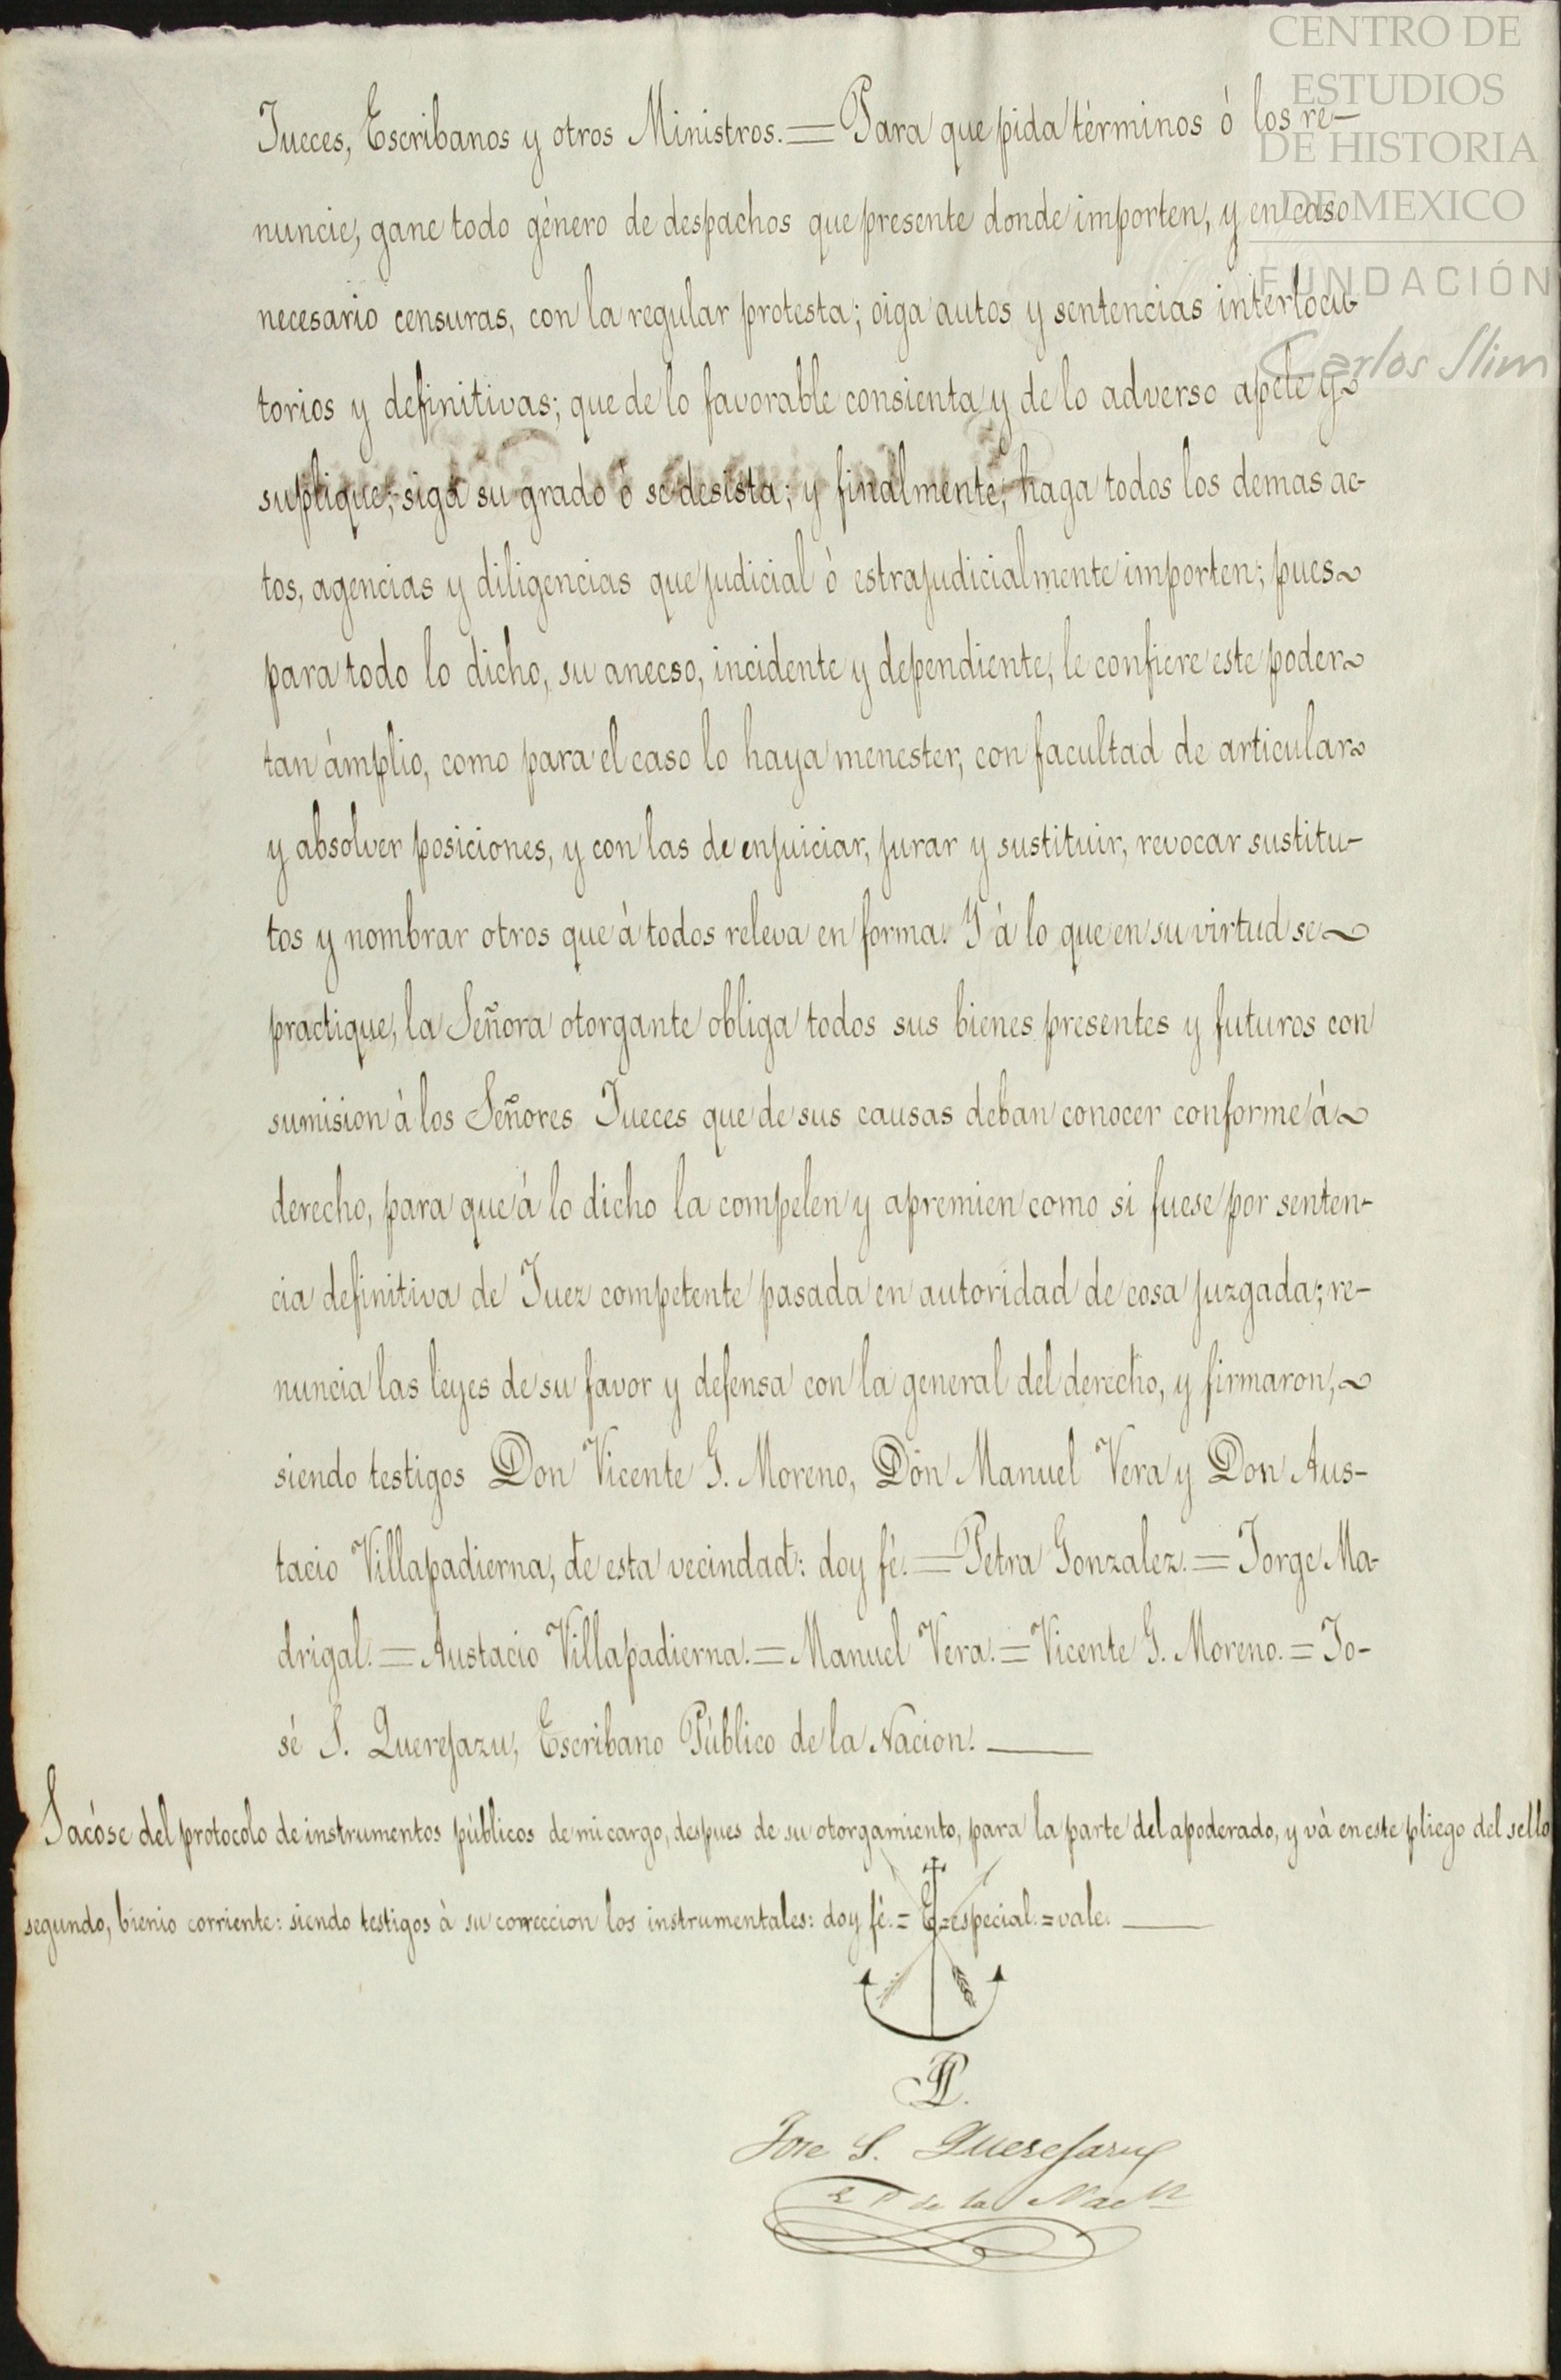 CENTRO DE
ESTUDIOS
DE HISTORIA
DE MEXICO
FUNDACIÓN
Carlos Slim
Jueces, Escribanos y otros Ministros.= Para que pida términos ó los re-
nuncie, gane todo género de despachos que presente donde importen, y en caso
necesario censuras, con la regular protesta; oiga autos y sentencias interlocu-
torios y definitivas; que de lo favorable consienta y de lo adverso apele y
suplique; siga su grado ó se desista; y finalmente, haga todos los demas ac-
tos, agencias y diligencias que judicial ó estrajudicialmente importen; pues
para todo lo dicho, su anecso, incidente y dependiente, le confiere este poder
tan ámplio, como para el caso lo haya menester, con facultad de articular
y absolver posiciones, y con las de enjuiciar, jurar y sustituir, revocar sustitu-
tos y nombrar otros que á todos releva en forma. Y á lo que en su virtud se
practique, la Señora otorgante obliga todos sus bienes presentes y futuros con
sumision á los Señores Jueces que de sus causas deban conocer conforme á
derecho, para que á lo dicho la compelen y apremien como si fuese por senten-
cia definitiva de Juez competente pasada en autoridad de cosa juzgada; re-
nuncia las leyes de su favor y defensa con la general del derecho, y firmaron,
siendo testigos Don Vicente G. Moreno, Don Manuel Vera y Don Aus-
tacio Villapadierna, de esta vecindad: doy fé.= Petra Gonzalez.= Jorge Ma-
drigal.= Austacio Villapadierna.= Manuel Vera.= Vicente G. Moreno.= Jo-
sé S. Querejazu, Escribano Público de la Nacion.
Sacóse del protocolo de instrumentos públicos de mi cargo, despues de su otorgamiento, para la parte del apoderado, y vá en este pliego del sello
segundo, bienio corriente: siendo testigos á su correccion los instrumentales: doy fé.= E=especial.=vale.
Jose S. Querejazu
E P de la Nacn